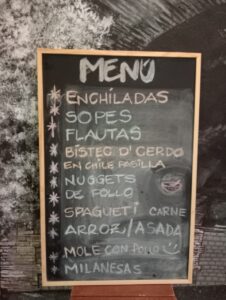 MENÚ
* ENCHILADAS
* SOPES
* FLAUTAS
* BISTEC D' CERDO
EN CHILE PASILLA
* NUGGETS
DE POLLO
* SPAGUETI CARNE
* ARROZ/ASADA
* MOLE CON POLLO
* MILANESAS